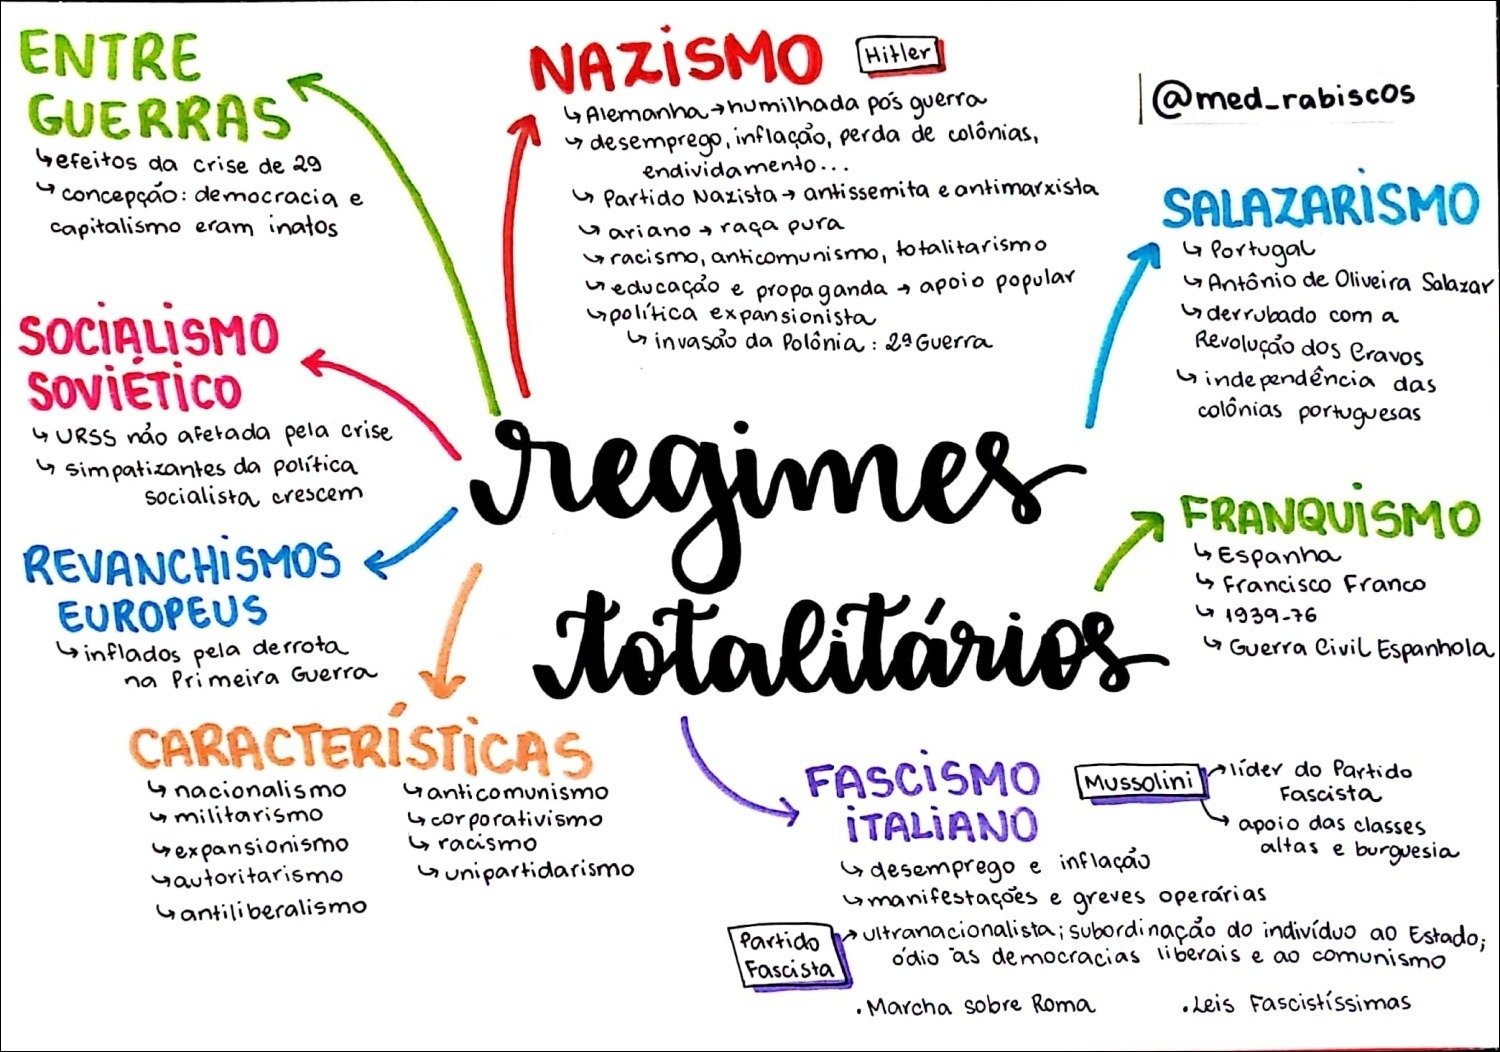 ENTRE
GUERRAS
↳efeitos da crise de 29
↳concepção: democracia e
capitalismo eram inatos
SOCIALISMO
SOVIÉTICO
↳URSS não afetada pela crise
↳simpatizantes da política
socialista crescem
REVANCHISMOS
EUROPEUS
↳inflados pela derrota
na Primeira Guerra
CARACTERÍSTICAS
↳nacionalismo
↳militarismo
↳expansionismo
↳autoritarismo
↳antiliberalismo
↳anticomunismo
↳corporativismo
↳racismo
↳unipartidarismo
NAZISMO Hitler
↳Alemanha→humilhada pós guerra
↳desemprego, inflação, perda de colônias,
endividamento...
↳Partido Nazista→antissemita e antimarxista
↳ariano→raça pura
↳racismo, anticomunismo, totalitarismo
↳educação e propaganda→apoio popular
↳política expansionista
↳invasão da Polônia: 2ª Guerra
regimes
totalitários
@med_rabiscos
SALAZARISMO
↳Portugal
↳Antônio de Oliveira Salazar
↳derrubado com a
Revolução dos Cravos
↳independência das
colônias portuguesas
FRANQUISMO
↳Espanha
↳Francisco Franco
↳1939-76
↳Guerra Civil Espanhola
FASCISMO
ITALIANO
Mussolini
→líder do Partido
Fascista
→apoio das classes
altas e burguesia
↳desemprego e inflação
↳manifestações e greves operárias
Partido
Fascista
→ultranacionalista; subordinação do indivíduo ao Estado;
ódio às democracias liberais e ao comunismo
.Marcha sobre Roma
.Leis Fascistíssimas